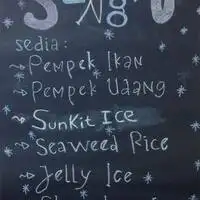 sedia:
Pempek Ikan
Pempek Udang
SunKit Ice
Seaweed Rice
Jelly Ice